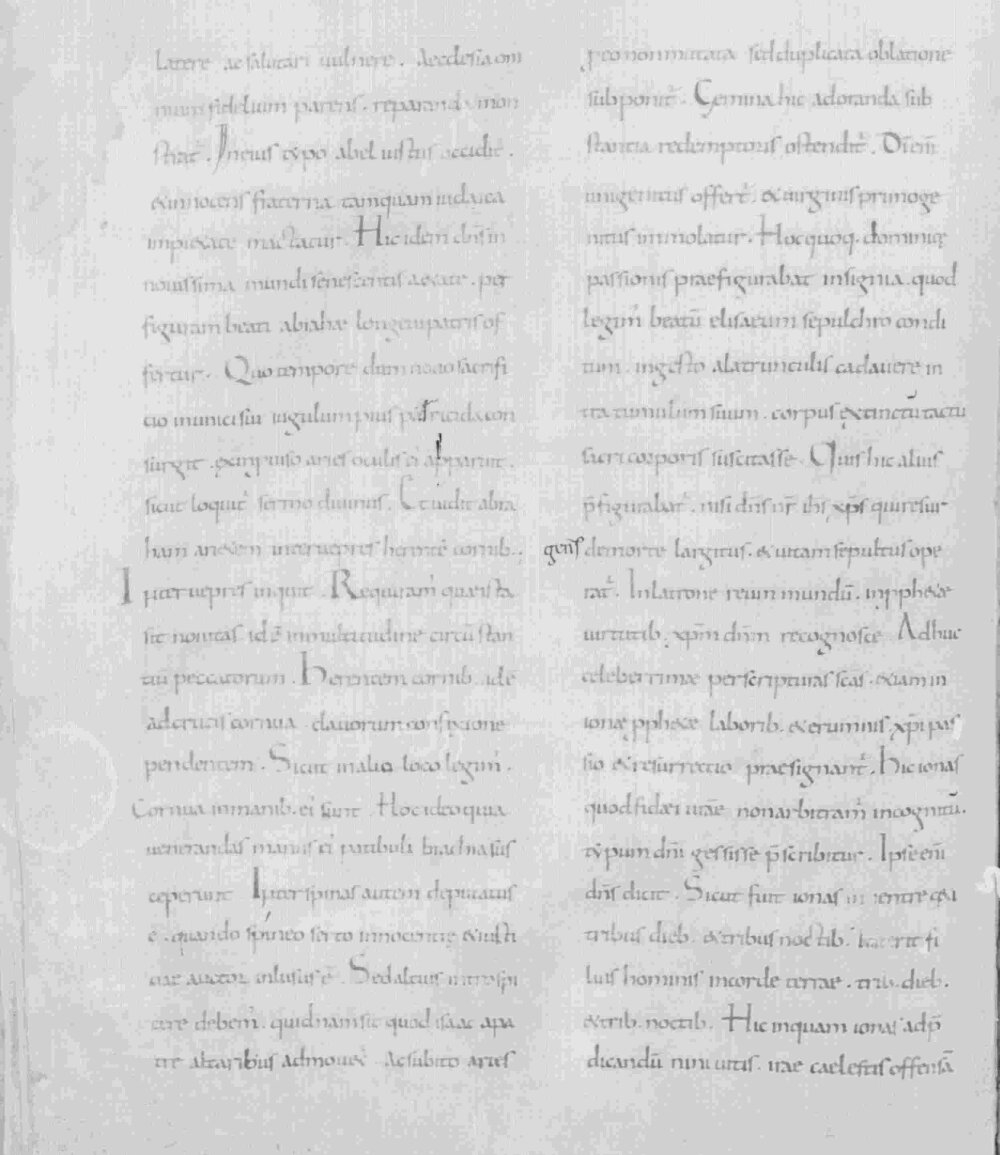 latere ac salutari uulnere. Aecclesia om
nium fidelium parens. reparanda mon
strat᷑. In eius tẏpo abel iustus occidit᷑.
& innocens fraterna tamquam iudaica
impietate mactatur. Hic idem dn̄s in
nouissima mundi senescentis aetate. per
figuram beati abrahae longeui patris of
fertur. Quo tempore dum nouo sacrifi
cio muneris sui iugulum pius parricida con
surgit. ex inprouiso aries oculis ei᾽ apparuit.
sicut loquit᷑ sermo diuinus. Et uidit abra
ham arietem inter uepres herente cornib.
Inter uepres inquit. Requiram᾽ quae ista
sit nouitas idē in multitudine circū stan
tiū peccatorum. Herentem cornib. idē
ad crucis cornua clauorum confixione
pendentem. Sicut in alio loco legim᾽.
Cornua in manib. ei᾽ sunt. Hoc ideo quia
uenerandas manus ei᾽ patibuli brachia sus
ceperunt. Inter spinas autem deputatus
ē. quando spineo serto innocentie & iusti
ciae auctor inlusus ē. Sed altius introspi
cere debem᾽. quidnam sit quod isaac a pa
tre altaribus admouet᷑. Ac subito aries
pro non mutata sed duplicata oblatione
subponit᷑. Gemina hic adoranda sub
stantia redemptoris ostendit᷑. Dī enī
unigenitus offert᷑. & uirginis primoge
nitus immolatur. Hoc quoq. dominicę
passionis praefigurabat insignia. quod
legim᾽ beatū elisaeum sepulchro condi
tum. ingesto a latrunculis cadauere in
tra tumulum suum. corpus extinctū tactu
sacri corporis suscitasse. Quis hic alius
p̄figurabat᷑. nisi dn̄s nr̄ ih̄s xp̄s qui resur
gens de morte largitus. & uitam sepultus ope
rat᷑. In latrone reum mundū. in pphetae
uirtutib. xp̄m dn̄m recognosce. Adhuc
celeberrimae per scripturas sc̄as. etiam in
ionae pphetae laborib. & erumnis xp̄i pas
sio & resurrectio praesignant᷑. Hic ionas
quod fidaei urāe non arbitram᾽ incognitū.
tẏpum dn̄i gessisse p̄scribitur. Ipse enī
dn̄s dicit. Sicut fuit ionas in uentre cęti
tribus dieb. & tribus noctib. ita erit fi
lius hominis in corde terrae. trib. dieb.
& trib. noctib. Hic inquam ionas ad p̄
dicandū niniuitis. irae caelestis offensā